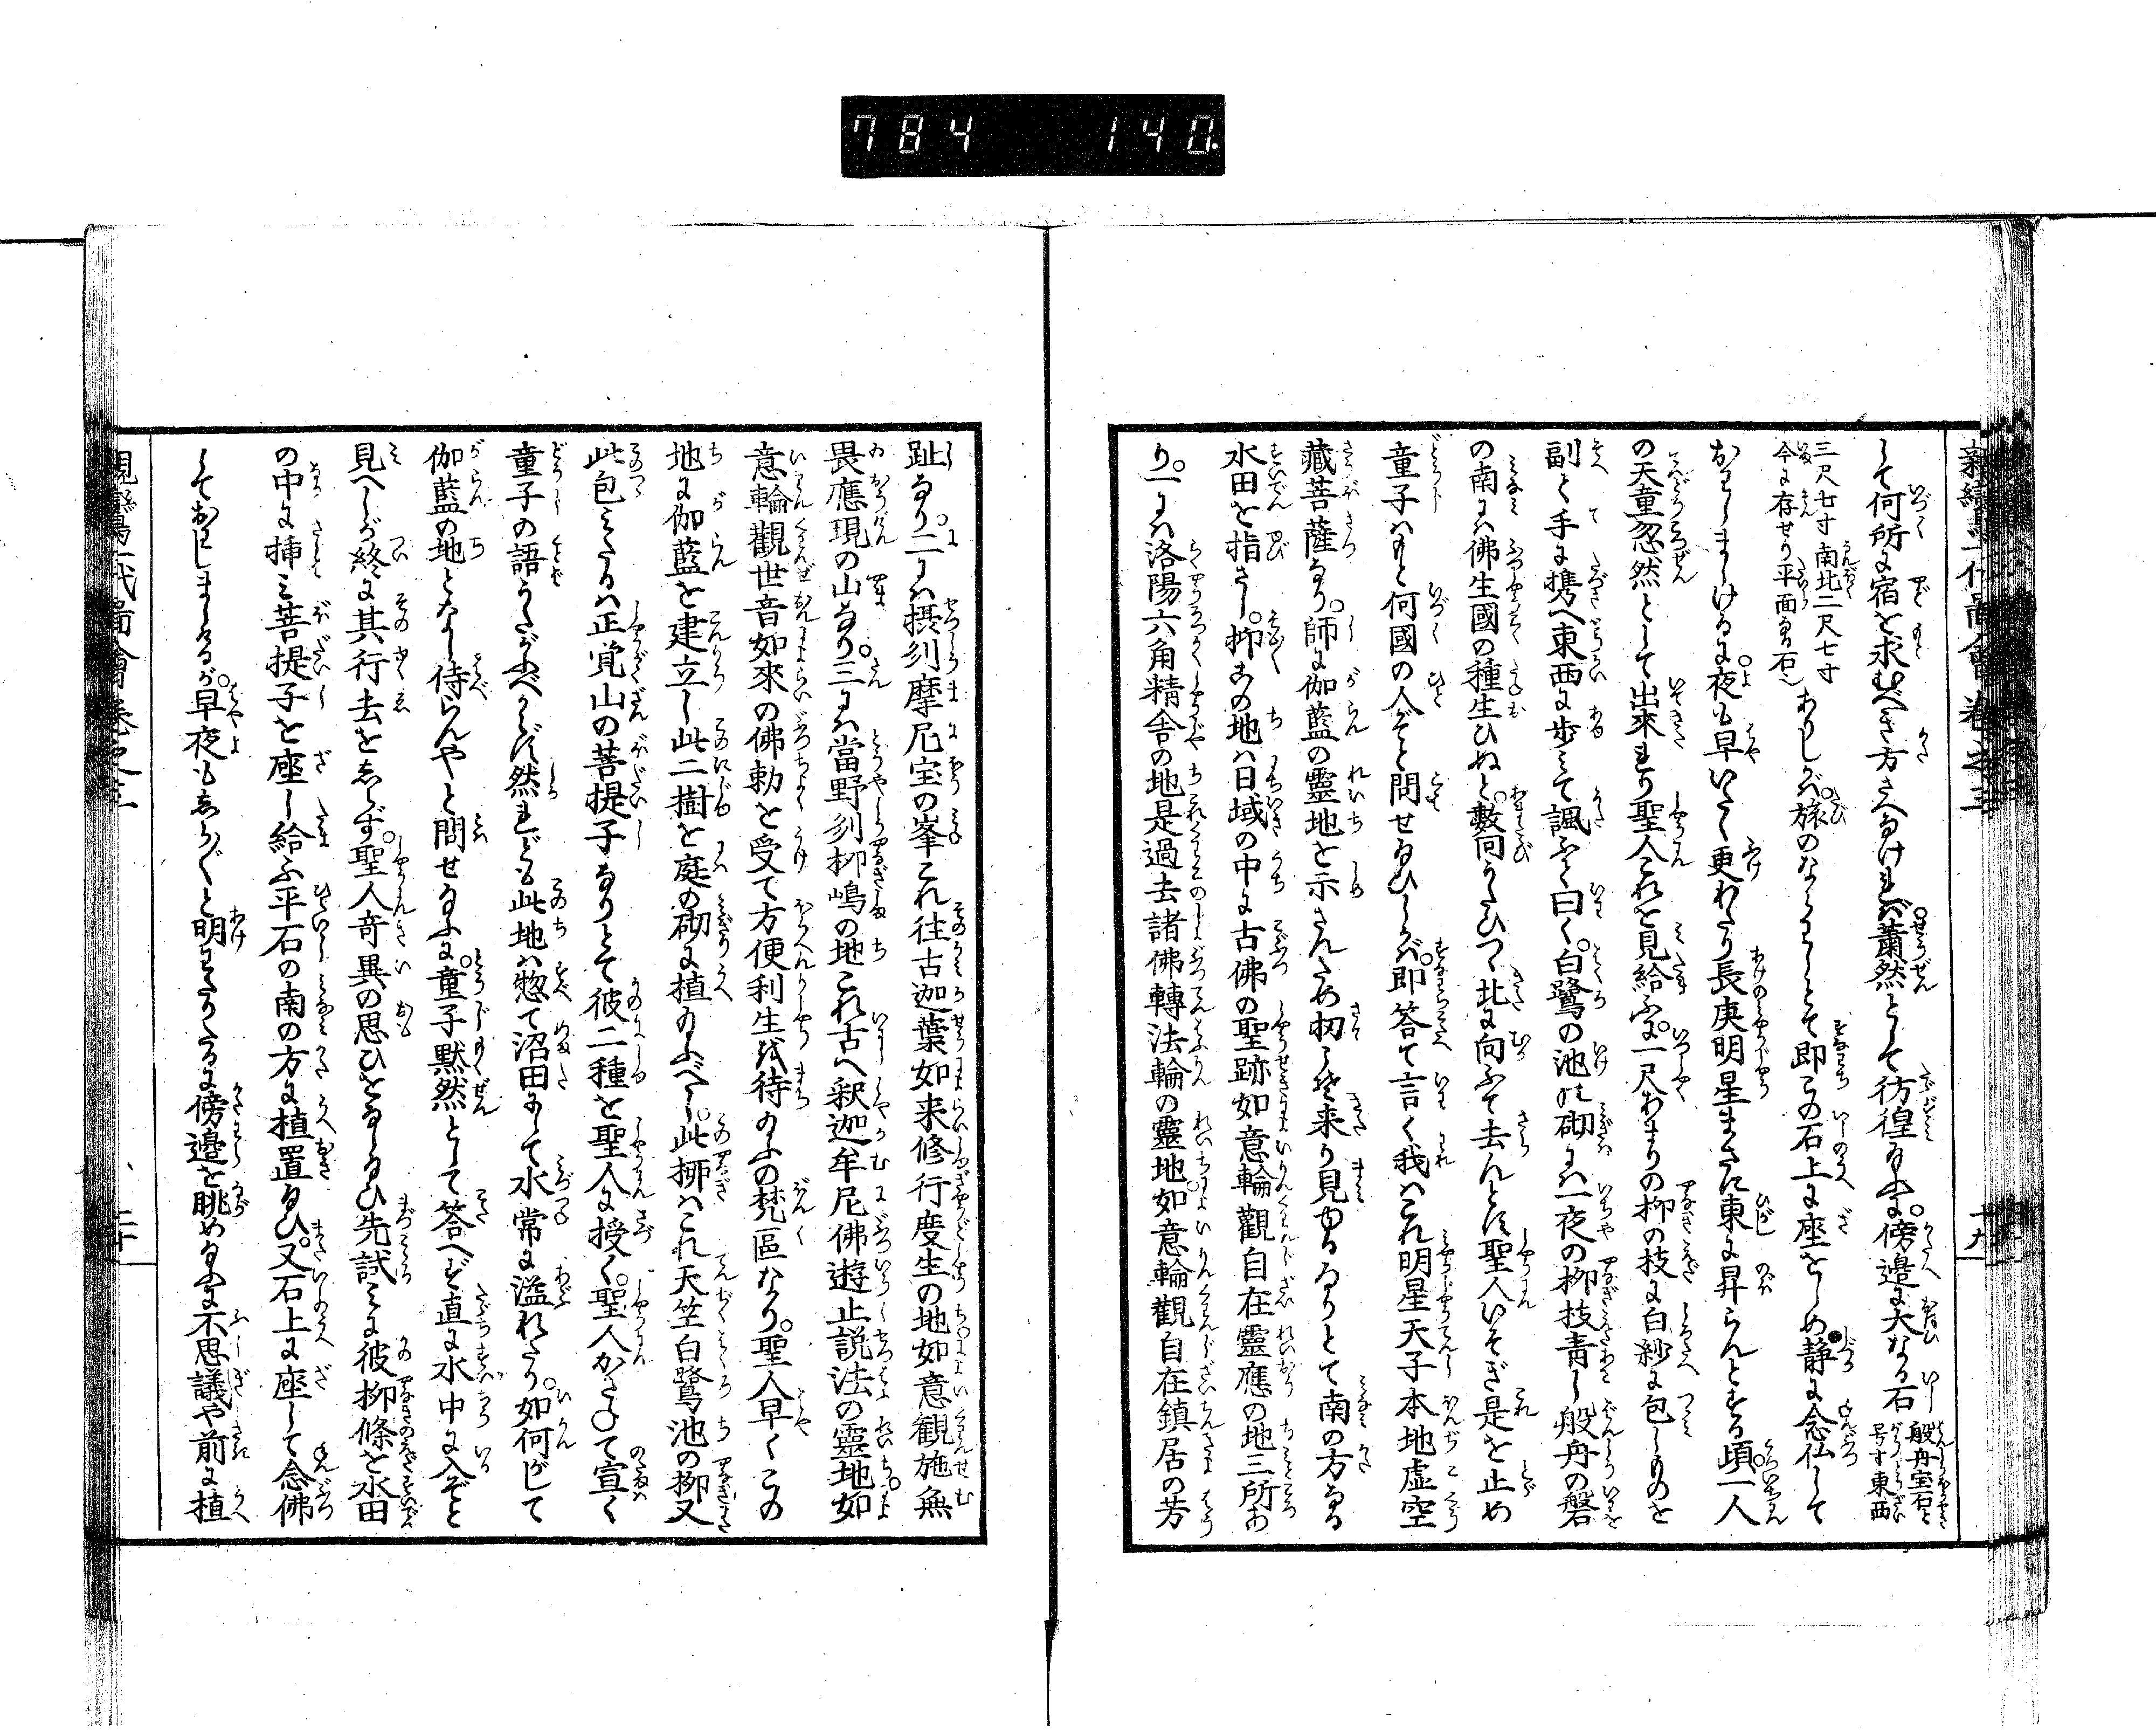 784 140.
親鸞上人一代圖會卷之三
十九
して何所に宿を求むべき方さへなければ。蕭然として彷徨給ふに。傍邊に大なる石
般舟宝石と号す東西
三尺七寸南北二尺七寸
今に存せり平面なる石也
ありしかば。旅のならはしとて即この石上に座をしめ静に念仏して
おはしましけるに。夜も早いたく更わたり長庚明星まさに東に昇らんとする頃。一人
の天童忽然として出來れり聖人これを見給ふに。一尺あまりの柳の枝に白紗に包しものを
副て手に携へ東西に歩みて諷ふて曰く。白鷺の池の砌には一夜の柳枝青し般舟の磐
の南には佛生國の種生ひぬと。數回うたひつゝ北に向ふて去んとす聖人いそぎ是を止め
童子はもと何國の人ぞと問せ給ひしかば。即答て言く我はこれ明星天子本地虚空
藏菩薩なり。師に伽藍の靈地を示さんため扨こそ来り見ゆるなりとて南の方なる
水田を指さし。抑この地は日域の中に古佛の聖跡如意輪觀自在靈應の地三所あ
り。一には洛陽六角精舎の地是過去諸佛轉法輪の靈地。如意輪觀自在鎮居の芳
趾なり。二には摂刕摩尼宝の峯これ往古迦葉如来修行度生の地如意観施無
畏應現の山なり。三には當野刕柳嶋の地これ古へ釈迦牟尼佛遊止説法の靈地。如
意輪觀世音如來の佛勅を受て方便利生を待のふの梵區なり。聖人早くこの
地に伽藍を建立し此二樹を庭の砌に植のふべし。此柳はこれ天竺白鷺池の柳又
此包みたるは正覚山の菩提子なりとて彼二種を聖人に授く。聖人かさねて宣く
童子の語うたがふべからず然れども此地は惣て沼田にして水常に溢れたり。如何して
伽藍の地となし侍らんやと問せ給ふに。童子黙然として答へず直に水中に入ぞと
見へしが終に其行去をしらず。聖人奇異の思ひをなし給ひ先試みに彼柳條を水田
の中に挿み菩提子を座し給ふ平石の南の方に植置給ひ。又石上に座して念佛
しておはしましけるが。早夜もしら〴〵と明わたりたるに傍邊を眺め給ふに不思議や前に植
親鸞一代圖會卷之三
二十